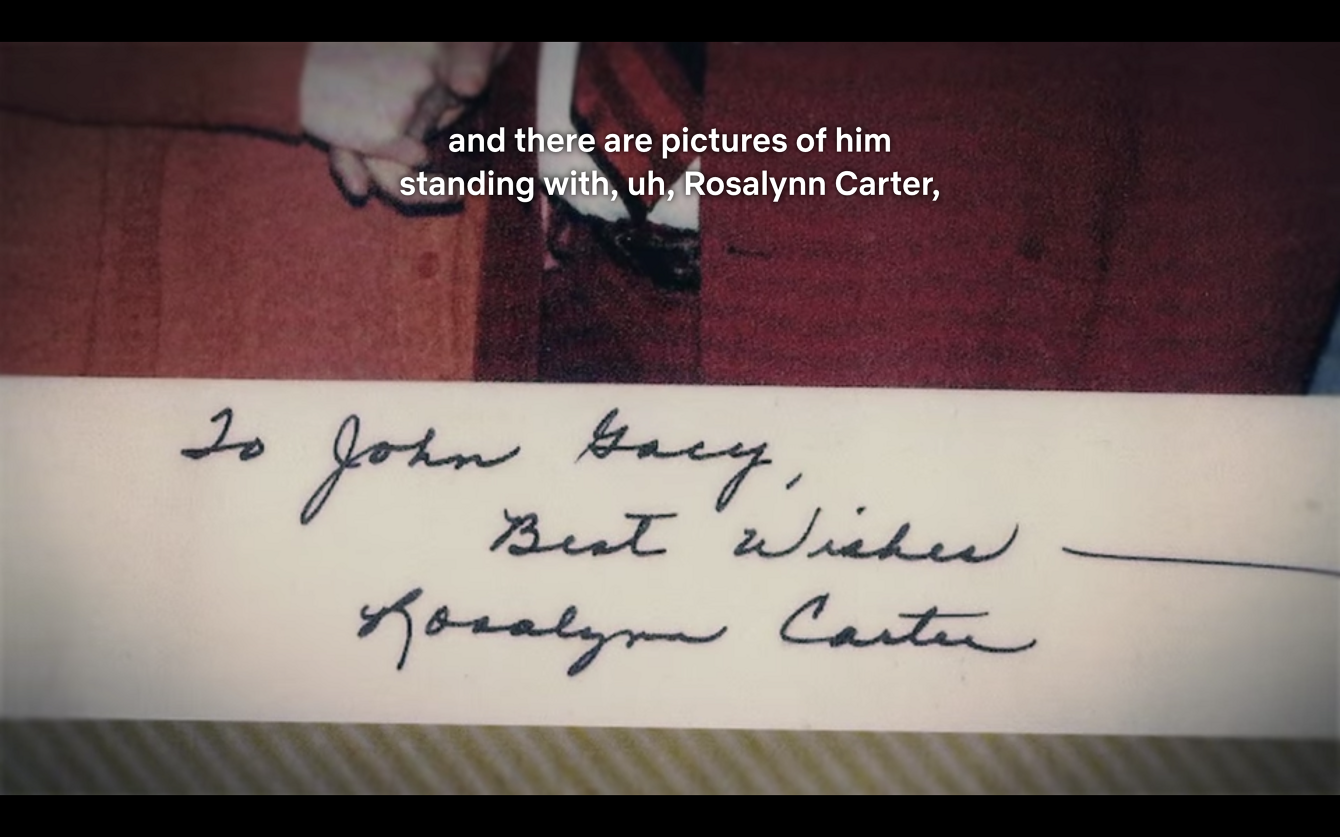 and there are pictures of him
standing with, uh, Rosalynn Carter,
To John Gacy,
Best Wishes —
Rosalynn Carter